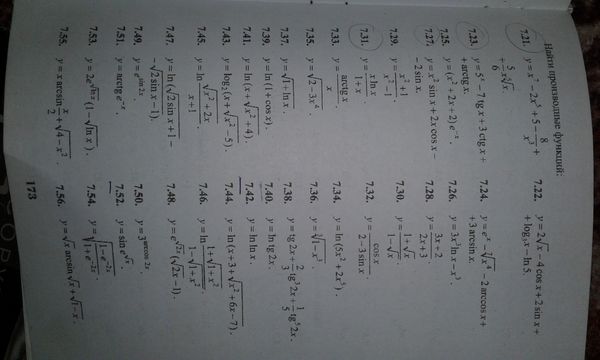 Найти производные функций:
7.21. y = x⁷ − 2x⁵ + 5 − 8/x³ +
+ 5/6 x·∛x.
7.22. y = 2√x − 4 cos x + 2 sin x +
+ log₃ x − ln 5.
7.23. y = 5ˣ − 7 tg x + 3 ctg x +
+ arctg x.
7.24. y = eˣ − ∜x − 2 arccos x +
+ 3 arcsin x.
7.25. y = (x² + 2x + 2) e⁻ˣ.
7.26. y = 3x³ ln x − x³.
7.27. y = x² sin x + 2x cos x −
− 2 sin x.
7.28. y = (3x + 2)/(2x + 3)
7.29. y = (x² + 1)/(x² − 1).
7.30. y = (1 + √x)/(1 − √x)
7.31. y = (x ln x)/(1 + x)
7.32. y = cos x/(2 − 3 sin x)
7.33. y = arctg x/x
7.34. y = ln (5x³ + 2x²).
7.35. y = √(2 − 3x⁴).
7.36. y = ∛(1 − x²).
7.37. y = √(1 + ln x).
7.38. y = tg 2x + 2/3 tg³ 2x + 1/5 tg⁵ 2x.
7.39. y = ln (1 + cos x).
7.40. y = ln tg 2x.
7.41. y = ln (x + √(x² + 4)).
7.42. y = ln ln x.
7.43. y = log₂ (x + √(x² − 5)).
7.44. y = ln (x + 3 + √(x² + 6x − 7)).
7.45. y = ln (√(x² + 2x)/(x + 1))
7.46. y = ln ((1 + √(1 + x²))/(1 − √(1 − x²)))
7.47. y = ln (√(2 sin x + 1) −
− √(2 sin x − 1).
7.48. y = e^√(2x) (√(2x) − 1).
7.49. y = e^(sin 2x).
7.50. y = 3^(arccos 2x).
7.51. y = arctg e⁻ˣ.
7.52. y = sin e^√x.
7.53. y = 2e^√(ln x) (1 − √(ln x)).
7.54. y = √((1 − e^(−2x))/(1 − e^(−2x)))
7.55. y = x arcsin x/2 + √(4 − x²).
7.56. y = √x arcsin √x + √(1 − x).
173